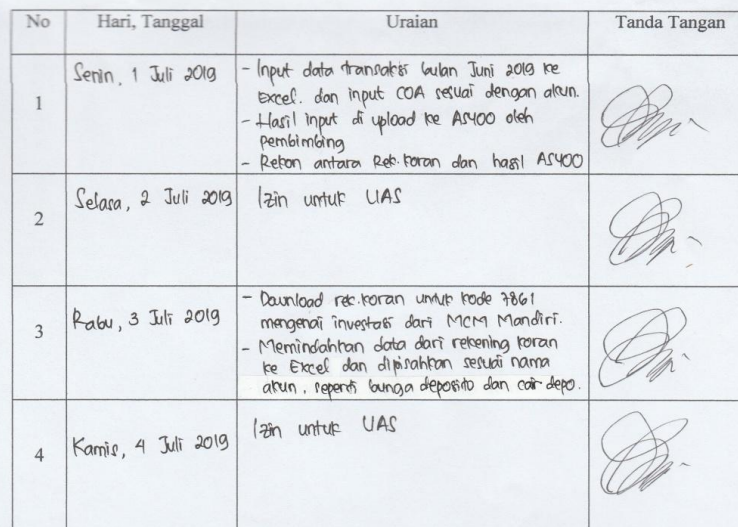 No Hari, Tanggal Uraian Tanda Tangan
1 Senin, 1 Juli 2019 - Input data transaksi bulan Juni 2019 ke
Excel. dan input COA sesuai dengan akun.
- Hasil input di upload ke AS400 oleh
pembimbing
- Rekon antara Rek. Koran dan hasil AS400
2 Selasa, 2 Juli 2019 Izin untuk UAS
3 Rabu, 3 Juli 2019 - Download rek. koran untuk kode 7861
mengenai investasi dari MCM Mandiri.
- Memindahkan data dari rekening koran
ke Excel dan dipisahkan sesuai nama
akun, seperti bunga deposito dan cair depo.
4 Kamis, 4 Juli 2019 Izin untuk UAS